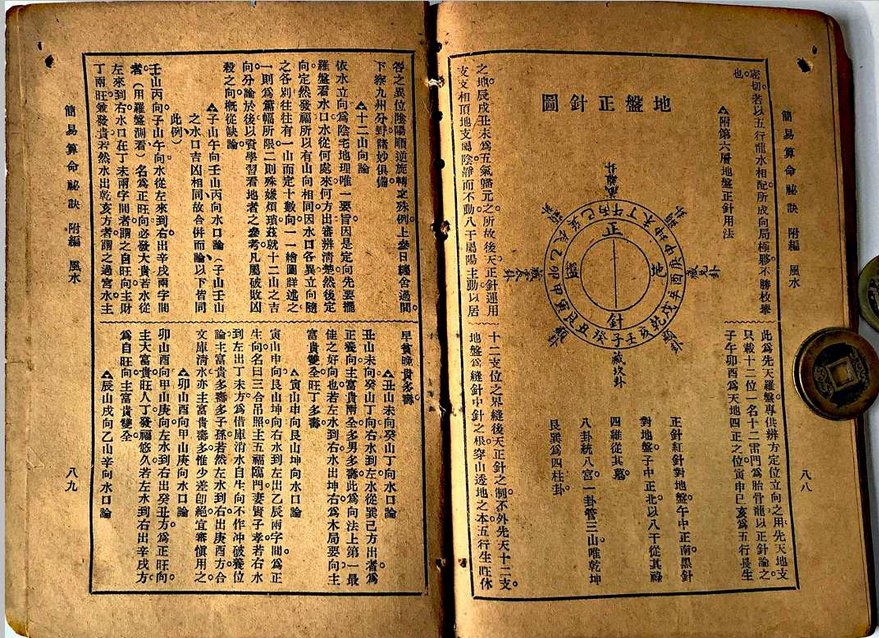 簡易算命祕訣 附編 風水 八八
密切者以五行龍水相配所成向局極夥不勝枚舉
也。
▲附第六層地盤正針用法
地盤正針圖
正
針
藏坎卦
子癸丑艮寅甲卯乙辰巽巳丙午丁未坤申庚酉辛戌乾亥壬
此爲先天羅盤專供辨方定位立向之用。先天地支
只載十二位一名十二雷門。爲胎骨龍以正針論之
子午卯酉爲天地四正之位寅申巳亥爲五行長生
正針紅針對地盤午中正南黑針
對地盤子中正北以八干從其祿
四維從其墓
八卦統八宮一卦管三山唯乾坤
艮巽爲四柱卦
之地。辰戌丑未爲五氣歸元之所。故後天正針運用
支支相頂。地支屬陰靜而不動八干屬陽主動以居
十二支位之界縫後天正針之制。不外先天十二支
地盤爲縫針中針之根穿山透地之本五行生旺休
咎之異位陰陽順逆旋轉之殊例上參日纏舍過閒
下察九州分野諸妙俱備
▲十二山向論
依水立向爲陰宅地理唯一要旨因是定向先要擺
羅盤看水口水從何處來何方出審辨清楚然後定
向定然發福所以有山向相同因水口各異立向隨
之各別往往有一山而定十數向一一繪圖詳述之
一則爲篇幅所限二則殊嫌煩瑣茲就十二山之吉
向分論於後以資學習看地者之參考凡屬破敗凶
殺之向概從缺論
▲子山午向壬山丙向水口論(子山午向壬山丙向
之水口吉凶相同故合併而論以下皆同
此例)
壬山丙向子山午向水從左來到右出辛戌兩字間
者(用羅盤測看)名爲正旺向必發大貴若水從
左來到右水口在丁未兩字間者謂之自旺向主財
丁兩旺發貴若然水出乾亥方者謂之過宮水主
早貧晚貴多壽。
▲丑山未向癸山丁向水口論
丑山未向癸山丁向右水到左水從巽巳方出者爲
正養向主富貴兩全多男多壽此爲向法上第一最
佳之好向也若左水到右水出坤右爲木局要向主
富貴雙全旺丁多壽
▲寅山申向艮山坤向水口論
寅山申向艮山坤向右水到左出乙辰兩字間爲正
生向名曰三合吊照主五福臨門妻賢子孝若右水
到左出丁未方爲借庫消水自生向不作冲破養位
論主富貴多壽多子孫若然左水到右出庚酉方合
文庫消水亦主富貴壽多惟少差卽絕宜審愼用之
▲卯山酉向甲山庚向水口論
卯山酉向甲山庚向左水到右出癸丑方爲正旺向。
主大富貴旺人丁發福悠久若左水到右出辛戌方
爲自旺向主富貴雙全。
▲辰山戌向乙山辛向水口論
簡易算命祕訣 附編 風水 八九